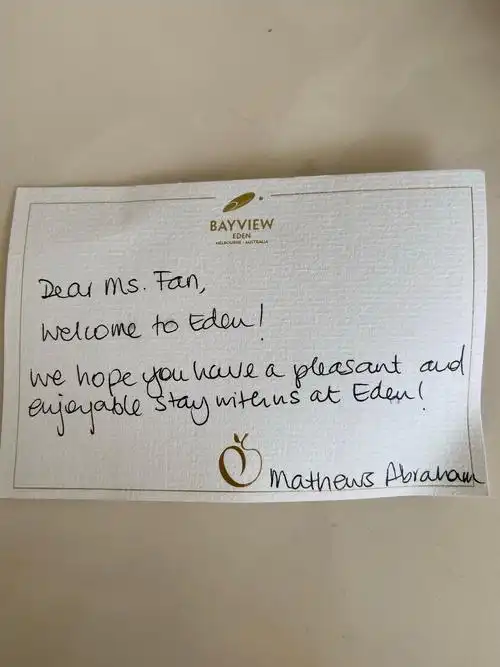 BAYVIEW
EDEN
MELBOURNE - AUSTRALIA
Dear Ms. Fan,
Welcome to Eden!
We hope you have a pleasant and
enjoyable stay with us at Eden!
Mathews Abraham